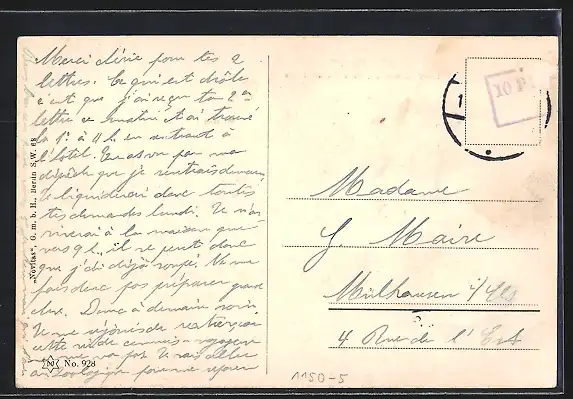 Merci chérie pour tes 2
lettres. Ce qui est drôle
c'est que j'ai reçu ta 2me
lettre ce matin et ai trouvé
la 1e à 4 h. en entrant à
l'hôtel. Tu as vu par ma
dépêche que je rentrais demain
Je liquiderai donc toutes
tes demandes lundi. Je n'ar
riverai à la maison que
vers 9 h., il se peut donc
que j'ai déjà soupé. Ne me
fais donc pas préparer grand
chose. Donc à demain soir.
Je me réjouis de
cette vie de commis-voyageur
ne me va pas. Je vais aller
au Zoologique
"Novitas", G. m. b. H., Berlin S.W. 68
No. 928
10 P
1
Madame
J. Maire
Mülhausen i/Els
4 Rue de l'Est
1150-5